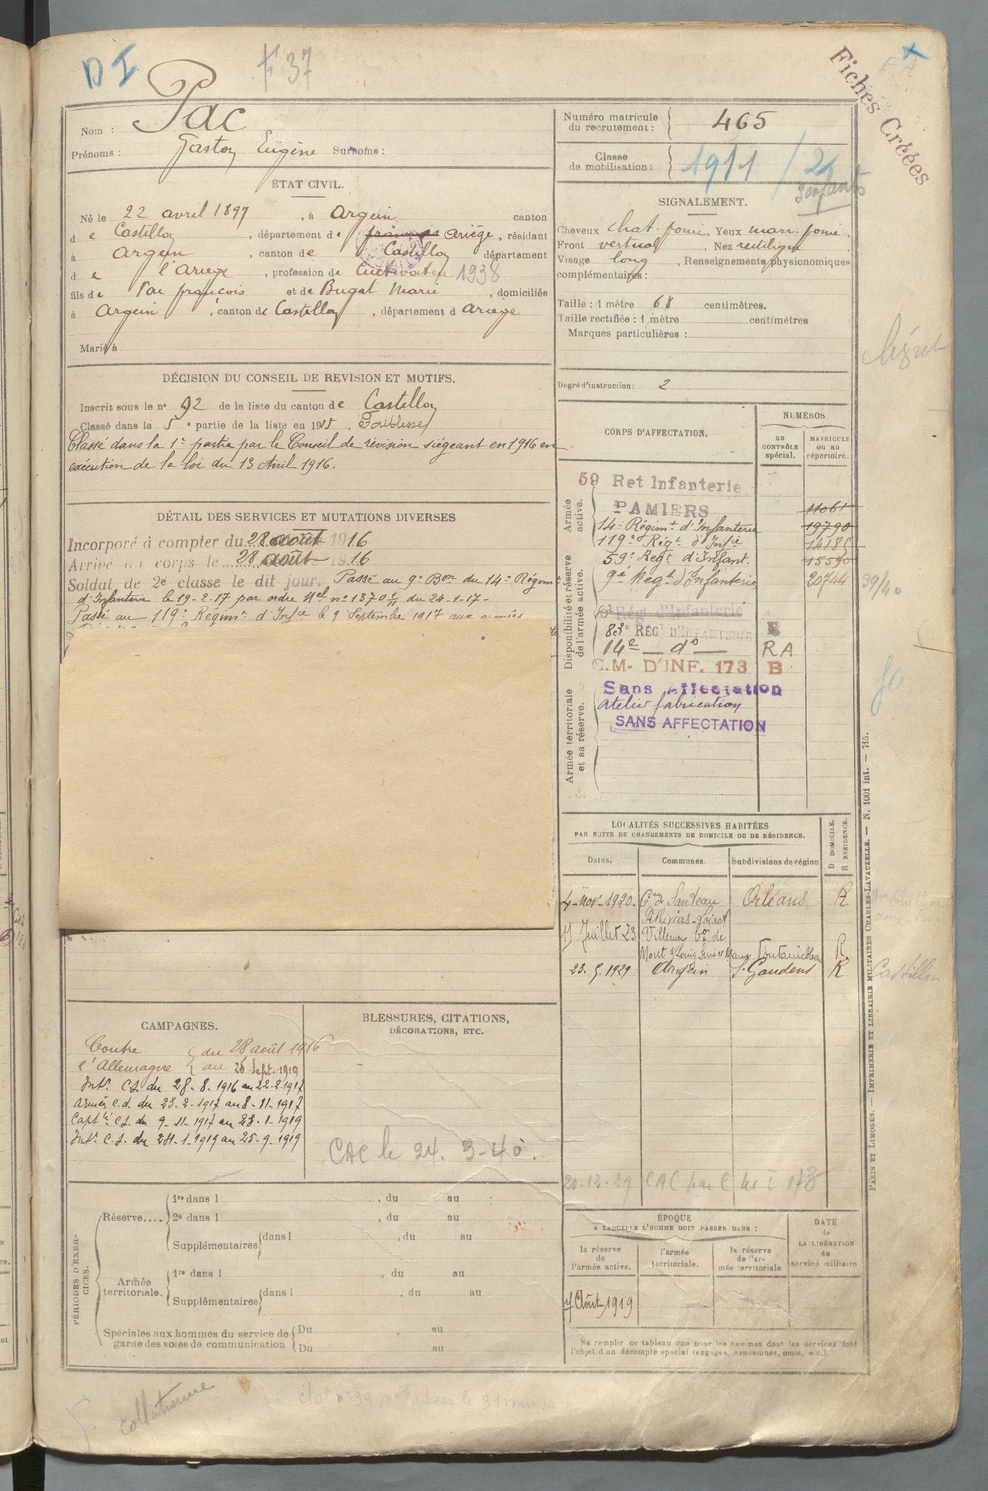 D I
F 37
Fiches Créées
Nom : Pac
Prénoms : Gaston Eugène Surnoms :
Numéro matricule du recrutement : 465
Classe de mobilisation : 1911 / 21
3 enfants
ÉTAT CIVIL.
Né le 22 avril 1897, à Argein canton
d e Castillon, département de Ariége, résidant
à Argein, canton de Castillon département
d e l'Ariege, profession de Cultivateur 1938
fils de Pac françois et de Bugat Marie, domiciliés
à Argein, canton de Castillon, département d Ariege
Marié à
SIGNALEMENT.
Cheveux chat. foncé, Yeux marr. foncé.
Front vertical, Nez rectiligne
Visage long, Renseignements physionomiques
complémentaires :
Taille : 1 mètre 68 centimètres.
Taille rectifiée : 1 mètre centimètres
Marques particulières :
Degré d'instruction : 2
DÉCISION DU CONSEIL DE REVISION ET MOTIFS.
Inscrit sous le n° 92 de la liste du canton de Castillon
Classé dans la 5e partie de la liste en 1915 Faiblesse
Classé dans la 1e partie par le Conseil de révision siégeant en 1916 en
exécution de la loi du 13 Avril 1916.
DÉTAIL DES SERVICES ET MUTATIONS DIVERSES
Incorporé à compter du 28 août 1916
Arrivé au corps le 28 août 1916
Soldat de 2e classe le dit jour. Passé au 9e Bon du 14e Régimt
d'Infanterie le 19-2-17 par ordre du 24-1-17-
Passé au 119e Régimt d'Infie le 9 Septembre 1917 aux armées
CORPS D'AFFECTATION.
NUMÉROS
AU CONTRÔLE spécial.
MATRICULE OU AU répertoire.
Armée active.
Disponibilité et réserve de l'armée active.
Armée territoriale et sa réserve.
59 Ret Infanterie
PAMIERS 11061
14e Régimt d'Infanterie 19790
119e Régt d'Infie 14185
59e Regt d'Infant. 15590
9e Regt d'Infanterie 20744 39/40
83e Rég. d'Infanterie
83e RÉGt D'INFANTERIE
14e — do — R.A
C.M- D'INF. 173 B
Sans Affectation
Atelier fabrication
SANS AFFECTATION
LOCALITÉS SUCCESSIVES HABITÉES
PAR SUITE DE CHANGEMENTS DE DOMICILE OU DE RÉSIDENCE.
Dates. Communes Subdivisions de région D DOMICILE. R RÉSIDENCE.
4-Nov-1920- Orléans R
11 Juillet 23 Villenoy R
23. 5. 1929 Argein St Gaudens R
20-12-29 CAC
CAMPAGNES.
Contre l'Allemagne du 28 août 1916 au 26 Sept. 1919
Intr. C.S. du 28-8-1916 au 22-2-1917
Armées C.d. du 23-2-1917 au 8-11-1917
Captté C.S. du 9-11-1917 au 23-1-1919
Intr. C.S. du 24-1-1919 au 25-9-1919
BLESSURES, CITATIONS,
DÉCORATIONS, ETC.
CAC le 24. 3-40.
PÉRIODES D'EXERCICES.
Réserve....
1re dans l , du au
2e dans l , du au
Supplémentaires dans l , du au
Armée territoriale.
1re dans l , du au
Supplémentaires dans l , du au
Spéciales aux hommes du service de garde des voies de communication
Du au
Du au
ÉPOQUE
A LAQUELLE L'HOMME DOIT PASSER DANS :
la réserve de l'armée active.
l'armée territoriale.
la réserve de l'armée territoriale.
DATE de LA LIBÉRATION du service militaire.
Août 1919
Ne remplir ce tableau que pour les hommes dont les services font
l'objet d'un décompte spécial (engagés, condamnés, omis, etc.).
PARIS ET LIMOGES. — IMPRIMERIE ET LIBRAIRIE MILITAIRES CHARLES-LAVAUZELLE. — N. 1001 int. — 715.
Castillon
collationné